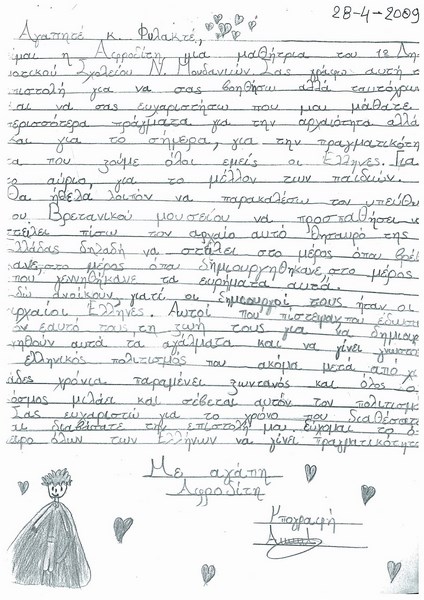 28-4-2009
Αγαπητέ κ. Φύλακτέ,
είμαι η Αφροδίτη μία μαθήτρια του 1ου Δη-
οτικού Σχολείου Ν. Μουδανιών. Σας γράφω αυτή τ
πιστολή για να σας βοηθήσω αλλά ταυτόχρον
και να σας ευχαριστήσω που μου μάθατε
ερισσότερα πράγματα για την αρχαιότητα αλλά
και για το σήμερα, για την πραγματικότη
τα που ζούμε όλοι εμείς οι Έλληνες. Για
το αύριο, για το μέλλον των παιδιών.
Θα ήθελα λοιπόν να παρακαλέσω τον υπεύθυ
ου Βρετανικού μουσείου να προσπαθήσει
στείλει πίσω τον αρχαίο αυτό θησαυρό της
λλάδας δηλαδή να στείλει στο μέρος όπου βρέ
ανε, στο μέρος όπου δημιουργηθήκανε, στο μέρος
που γεννηθήκανε τα ευρήματα αυτά.
δώ ανοίκουν, γιατί οι δημιουργοί τους ήταν οι
ρχαίοι Έλληνες. Αυτοί που πίστεψαν, που έδωσα
ον εαυτό τους, τη ζωή τους για να δημιου
γηθούν αυτά τα αγάλματα και να γίνει γνωστό
ελληνικός πολιτισμός που ακόμα μετά από χ
άδες χρόνια παραμένει ζωντανός και όλος ο
όσμος μιλάει και σέβεται αυτόν τον πολιτισμ
Σας ευχαριστώ για το χρόνο που διαθέσατ
αι διαβάσατε την επιστολή μου. Εύχομαι το ό-
ειρο όλων των Ελλήνων να γίνει πραγματικότητ
Με αγάπη
Αφροδίτη
Υπογραφή